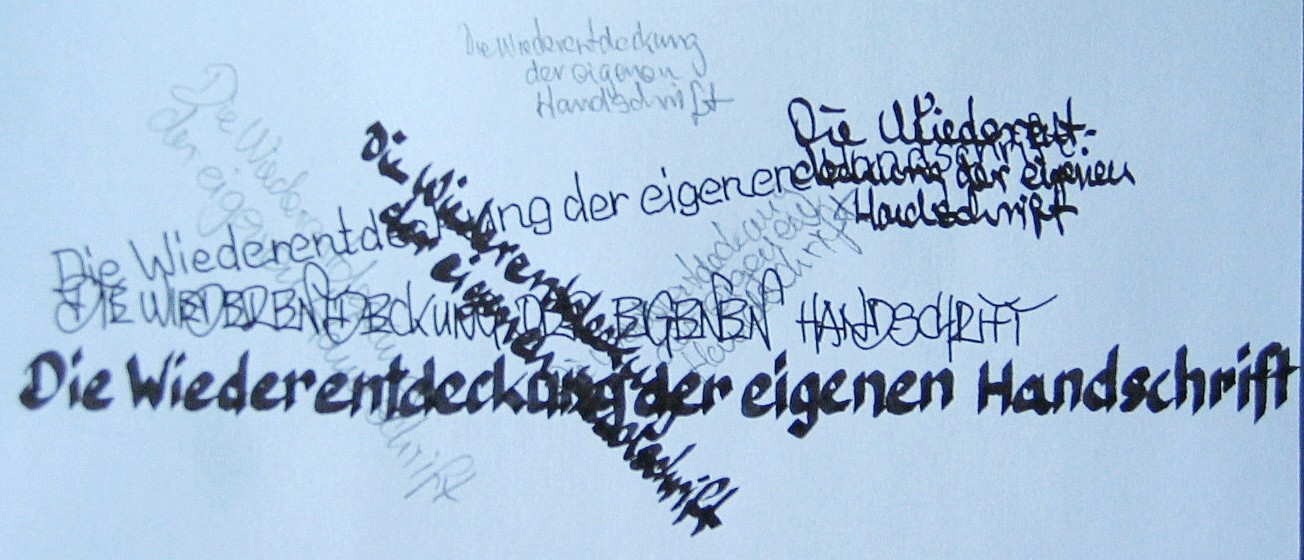 Die Wiederentdeckung
der eigenen
Handschrift
Die Wiederent-
deckung der eigenen
Handschrift
Die Wiederentdeckung der eigenen Handschrift
DIE WIEDERENTDECKUNG DER EIGENEN HANDSCHRIFT
Die Wiederentdeckung der eigenen Handschrift
Die Wiederentdeckung
der eigenen Handschrift
Die Wieder
der eigen
schrift